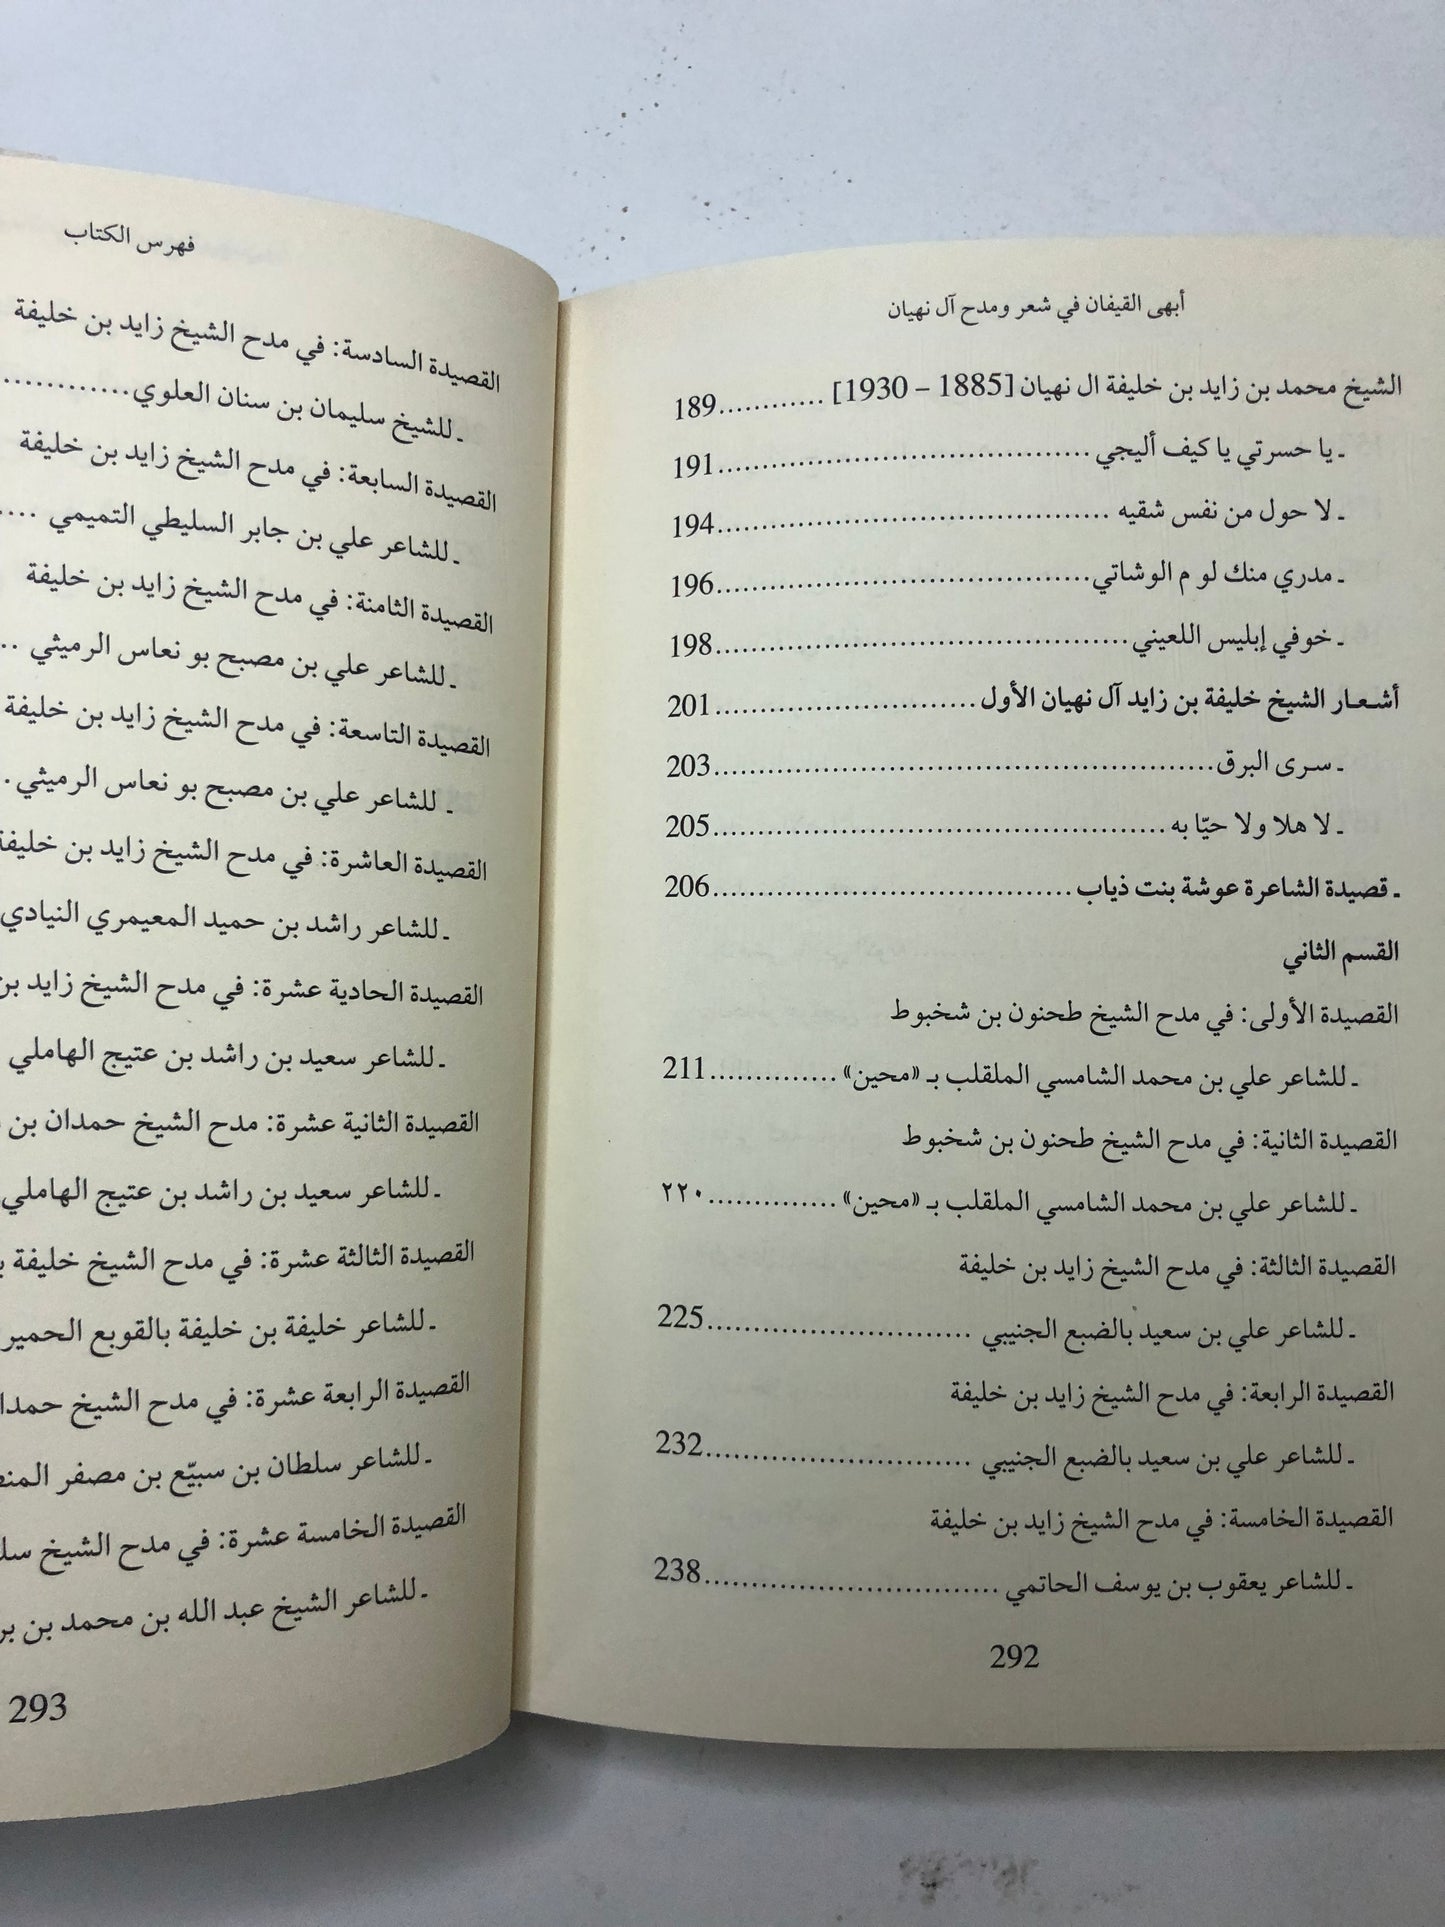 أبهى القيفان في شعر ومدح آل نهيان
الشيخ محمد بن زايد بن خليفة ال نهيان [1885 – 1930] ............ 189
ـ يا حسرتي يا كيف أليجي ........................................ 191
ـ لا حول من نفس شقيه ........................................ 194
ـ مدري منك لو م الوشاتي ........................................ 196
ـ خوفي إبليس اللعيني ............................................ 198
أشـعـار الشيخ خليفة بن زايد آل نهيان الأول ........................... 201
ـ سـرى البرق ...................................................... 203
ـ لا هلا ولا حيّا به ................................................ 205
ـ قصيدة الشاعرة عوشة بنت ذياب ..................................... 206
القسم الثاني
القصيدة الأولى: في مدح الشيخ طحنون بن شخبوط
ـ للشاعر علي بن محمد الشامسي الملقلب بـ «محين» .............. 211
القصيدة الثانية: في مدح الشيخ طحنون بن شخبوط
ـ للشاعر علي بن محمد الشامسي الملقلب بـ «محين» .............. ٢٢٠
القصيدة الثالثة: في مدح الشيخ زايد بن خليفة
ـ للشاعر علي بن سعيد بالضبع الجنيبي ............................ 225
القصيدة الرابعة: في مدح الشيخ زايد بن خليفة
ـ للشاعر علي بن سعيد بالضبع الجنيبي ............................ 232
القصيدة الخامسة: في مدح الشيخ زايد بن خليفة
ـ للشاعر يعقوب بن يوسف الحاتمي ............................... 238
292
فهرس الكتاب
القصيدة السادسة: في مدح الشيخ زايد بن خليفة
ـ للشيخ سليمان بن سنان العلوي ............
القصيدة السابعة: في مدح الشيخ زايد بن خليفة
ـ للشاعر علي بن جابر السليطي التميمي ....
القصيدة الثامنة: في مدح الشيخ زايد بن خليفة
ـ للشاعر علي بن مصبح بو نعاس الرميثي ..
القصيدة التاسعة: في مدح الشيخ زايد بن خليفة
ـ للشاعر علي بن مصبح بو نعاس الرميثي .
القصيدة العاشرة: في مدح الشيخ زايد بن خليفة
ـ للشاعر راشد بن حميد المعيمري النيادي
القصيدة الحادية عشرة: في مدح الشيخ زايد بن
ـ للشاعر سعيد بن راشد بن عتيج الهاملي
القصيدة الثانية عشرة: مدح الشيخ حمدان بن
ـ للشاعر سعيد بن راشد بن عتيج الهاملي
القصيدة الثالثة عشرة: في مدح الشيخ خليفة
ـ للشاعر خليفة بن خليفة بالقوبع
القصيدة الرابعة عشرة: في مدح الشيخ
ـ للشاعر سلطان بن سبيّع بن مصفر
القصيدة الخامسة عشرة: في مدح الشيخ
ـ للشاعر الشيخ عبد الله بن محمد بن
293